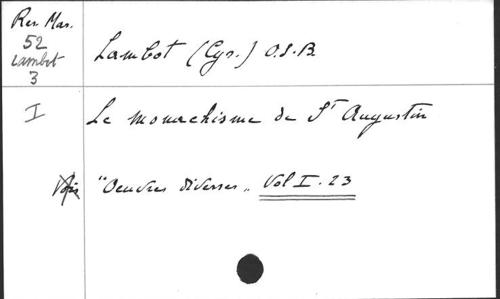 Rev. Mar.
52
Lambot
3
Lambot (Cyr.) O.S.B
I
Le monachisme de St Augustin
Voir "Oeuvres diverses„ Vol I. 23